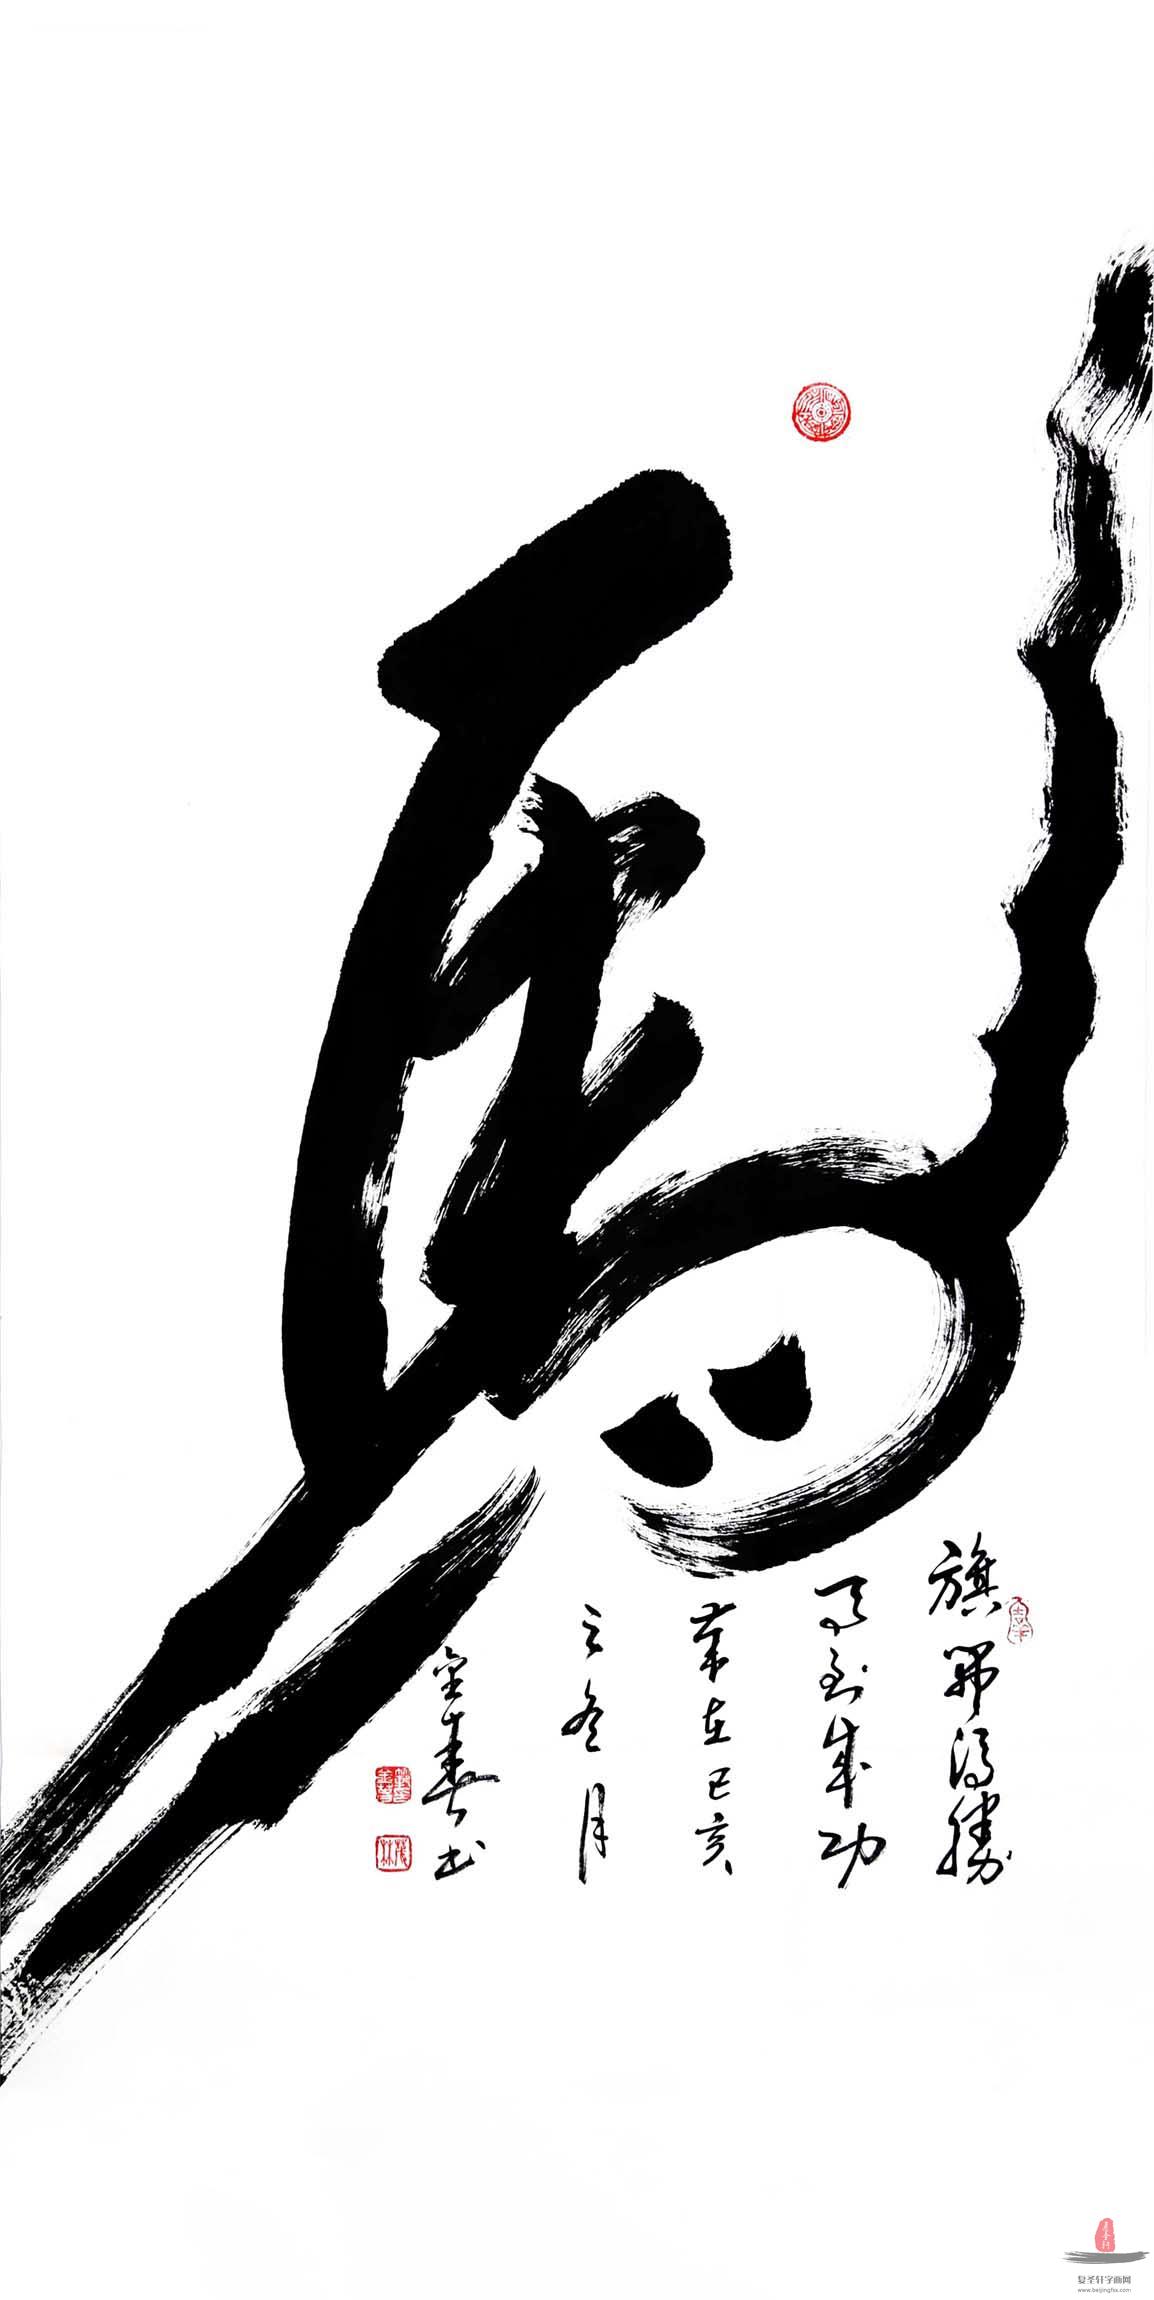 馬
旗開得勝
馬到成功
歲在己亥
之冬月
金春書
复圣轩字画网
www.beijingfsx.com